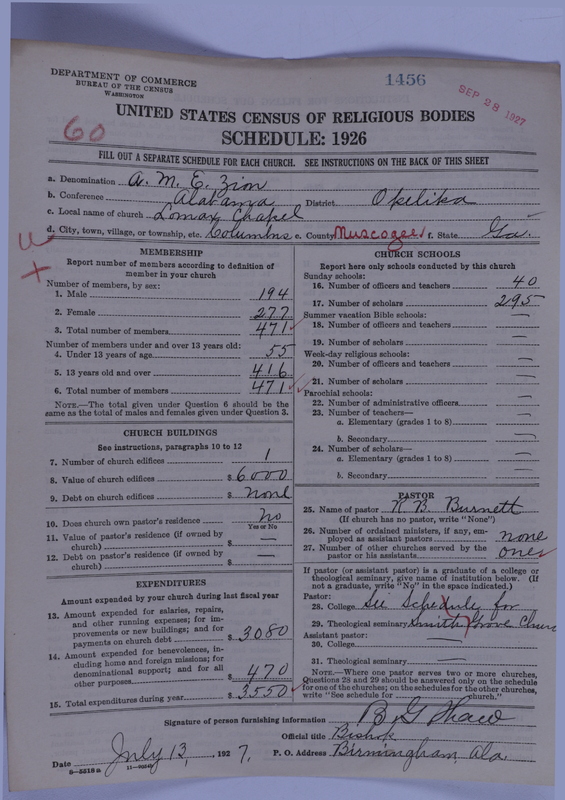 DEPARTMENT OF COMMERCE
BUREAU OF THE CENSUS
WASHINGTON
1456
SEP 28 1927
60
UNITED STATES CENSUS OF RELIGIOUS BODIES
SCHEDULE: 1926
FILL OUT A SEPARATE SCHEDULE FOR EACH CHURCH. SEE INSTRUCTIONS ON THE BACK OF THIS SHEET
a. Denomination A. M. E. Zion
b. Conference Alabama District Opelika
c. Local name of church Lomax Chapel
d. City, town, village, or township, etc. Columbus e. County Muscogee f. State Ga.
MEMBERSHIP
Report number of members according to definition of
member in your church
Number of members, by sex:
1. Male 194
2. Female 277
3. Total number of members 471
Number of members under and over 13 years old:
4. Under 13 years of age 55
5. 13 years old and over 416
6. Total number of members 471
NOTE.—The total given under Question 6 should be
same as the total of males and females given under Question 3.
CHURCH BUILDINGS
See instructions, paragraphs 10 to 12
7. Number of church edifices 1
8. Value of church edifices $ 6000
9. Debt on church edifices $ none
10. Does church own pastor's residence no
Yes or No
11. Value of pastor's residence (if owned by
church) $ —
12. Debt on pastor's residence (if owned by
church) $ —
EXPENDITURES
Amount expended by your church during last fiscal year
13. Amount expended for salaries, repairs,
and other running expenses; for im-
provements or new buildings; and for
payments on church debt $ 3080
14. Amount expended for benevolences, in-
cluding home and foreign missions; for
denominational support; and for all
other purposes $ 470
15. Total expenditures during year $ 3550
CHURCH SCHOOLS
Report here only schools conducted by this church
Sunday schools:
16. Number of officers and teachers 40
17. Number of scholars 295
Summer vacation Bible schools:
18. Number of officers and teachers —
19. Number of scholars —
Week-day religious schools:
20. Number of officers and teachers —
21. Number of scholars —
Parochial schools:
22. Number of administrative officers —
23. Number of teachers—
a. Elementary (grades 1 to 8) —
b. Secondary —
24. Number of scholars—
a. Elementary (grades 1 to 8) —
b. Secondary —
PASTOR
25. Name of pastor R. B. Burnett
(If church has no pastor, write "None")
26. Number of ordained ministers, if any, em-
ployed as assistant pastors none
27. Number of other churches served by the
pastor or his assistants one
If pastor (or assistant pastor) is a graduate of a college or
theological seminary, give name of institution below. (If
not a graduate, write "No" in the space indicated.)
Pastor:
28. College See Schedule for
29. Theological seminary Smith Grove Church
Assistant pastor:
30. College —
31. Theological seminary —
NOTE.—Where one pastor serves two or more churches,
Questions 28 and 29 should be answered only on the schedule
for one of the churches; on the schedules for the other churches,
write "See schedule for ______ church."
Signature of person furnishing information B. G. Shaw
Official title Bishop
Date July 13, 1927. P. O. Address Birmingham Ala.